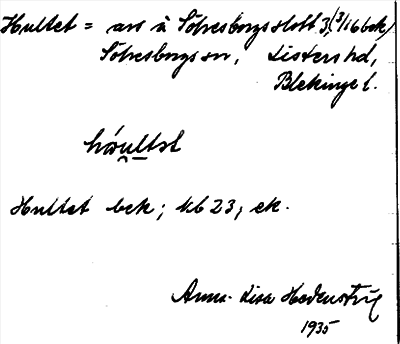 Hultet = avs å Sölvesborgs slott 3, (3/16 bek)
Sölvesborgs sn, Listers hd,
Blekinge l.
Hultet bek; kb 23; ek.
Anna-Lisa Hedenstig
1935